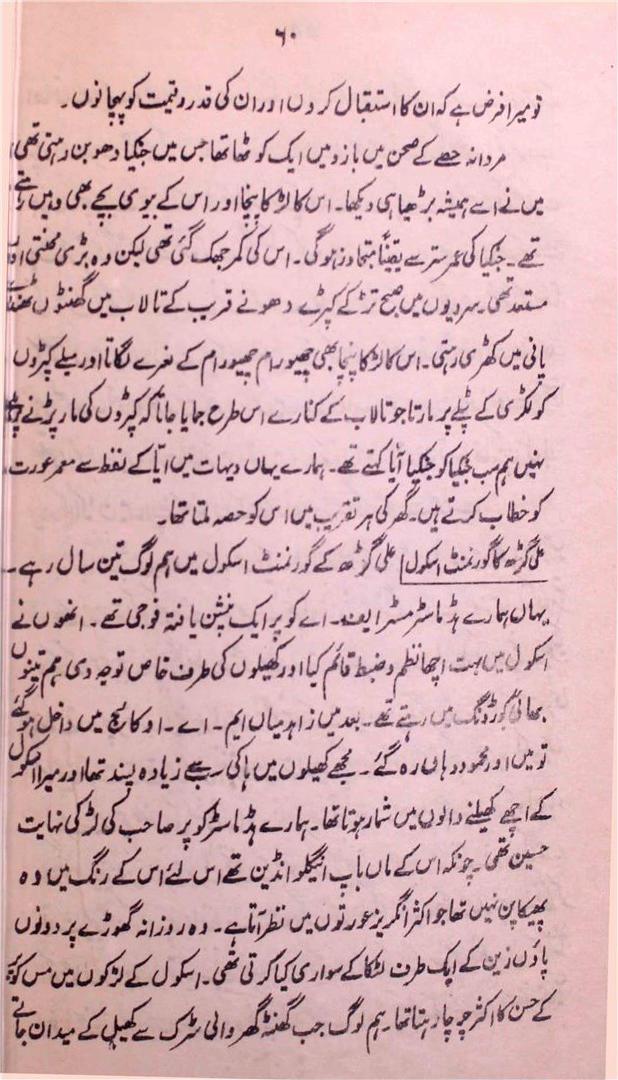 ۶۰
تو میرا فرض ہے کہ ان کا استقبال کروں اور ان کی قدر و قیمت کو پہچانوں۔
مردانہ حصے کے صحن میں بازو میں ایک کوٹھا تھا جس میں جنکیا دھوبن رہتی تھی
میں نے اسے ہمیشہ بڑھیا ہی دیکھا۔ اس کا لڑکا پنچا اور اس کے بیوی بچے بھی وہیں رہتے
تھے۔ جنکیا کی عمر ستر سے یقیناً متجاوز ہوگی۔ اس کی کمر جھک گئی تھی لیکن وہ بڑی محنتی اور
مستعد تھی۔ سردیوں میں صبح تڑکے کپڑے دھونے قریب کے تالاب میں گھنٹوں ٹھنڈے
پانی میں کھڑی رہتی۔ اس کا لڑکا پنچا بھی چھیو رام چھیو رام کے نعرے لگاتا اور میلے کپڑوں
کو لکڑی کے پٹلے پر مارتا جو تالاب کے کنارے اس طرح جمایا جاتا کہ کپڑوں کی مار پڑنے پر ہلے
نہیں ہم سب جنکیا کو جنکیا آیا کہتے تھے۔ ہمارے یہاں دیہات میں ایّا کے لفظ سے معمر عورت
کو خطاب کرتے ہیں۔ گھر کی ہر تقریب میں اس کو حصہ ملتا تھا۔
علی گڑھ کا گورنمنٹ اسکول | علی گڑھ کے گورنمنٹ اسکول میں ہم لوگ تین سال رہے۔
یہاں ہمارے ہڈ ماسٹر مسٹر ایف۔ اے کوپر ایک پنشن یافتہ فوجی تھے۔ انھوں نے
اسکول میں بہت اچھا نظم و ضبط قائم کیا اور کھیلوں کی طرف خاص توجہ دی ہم تینوں
بھائی بورڈنگ میں رہتے تھے۔ بعد میں زاہد میاں ایم۔ اے۔ او کالج میں داخل ہوگئے
تو میں اور محمود وہاں رہ گئے۔ مجھے کھیلوں میں ہاکی سب سے زیادہ پسند تھا اور میرا اسکول
کے اچھے کھیلنے والوں میں شمار ہوتا تھا۔ ہمارے ہڈ ماسٹر کوپر صاحب کی لڑکی نہایت
حسین تھی۔ چونکہ اس کے ماں باپ انیگلو انڈین تھے اس لئے اس کے رنگ میں وہ
پھیکا پن نہیں تھا جو اکثر انگریز عورتوں میں نظر آتا ہے۔ وہ روزانہ گھوڑے پر دونوں
پاؤں زین کے ایک طرف لٹکا کے سواری کیا کرتی تھی۔ اسکول کے لڑکوں میں مس کوپر
کے حسن کا اکثر چرچا رہتا تھا۔ ہم لوگ جب گھنٹہ گھر والی سڑک سے کھیل کے میدان جاتے